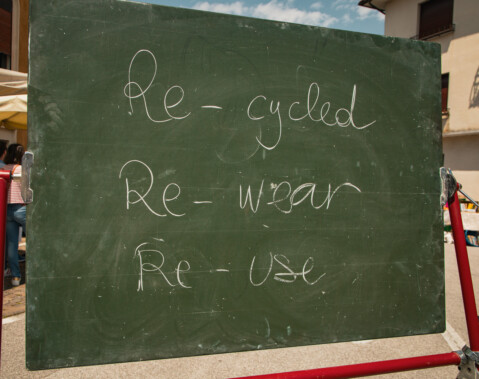 Re-cycled
Re-wear
Re-use